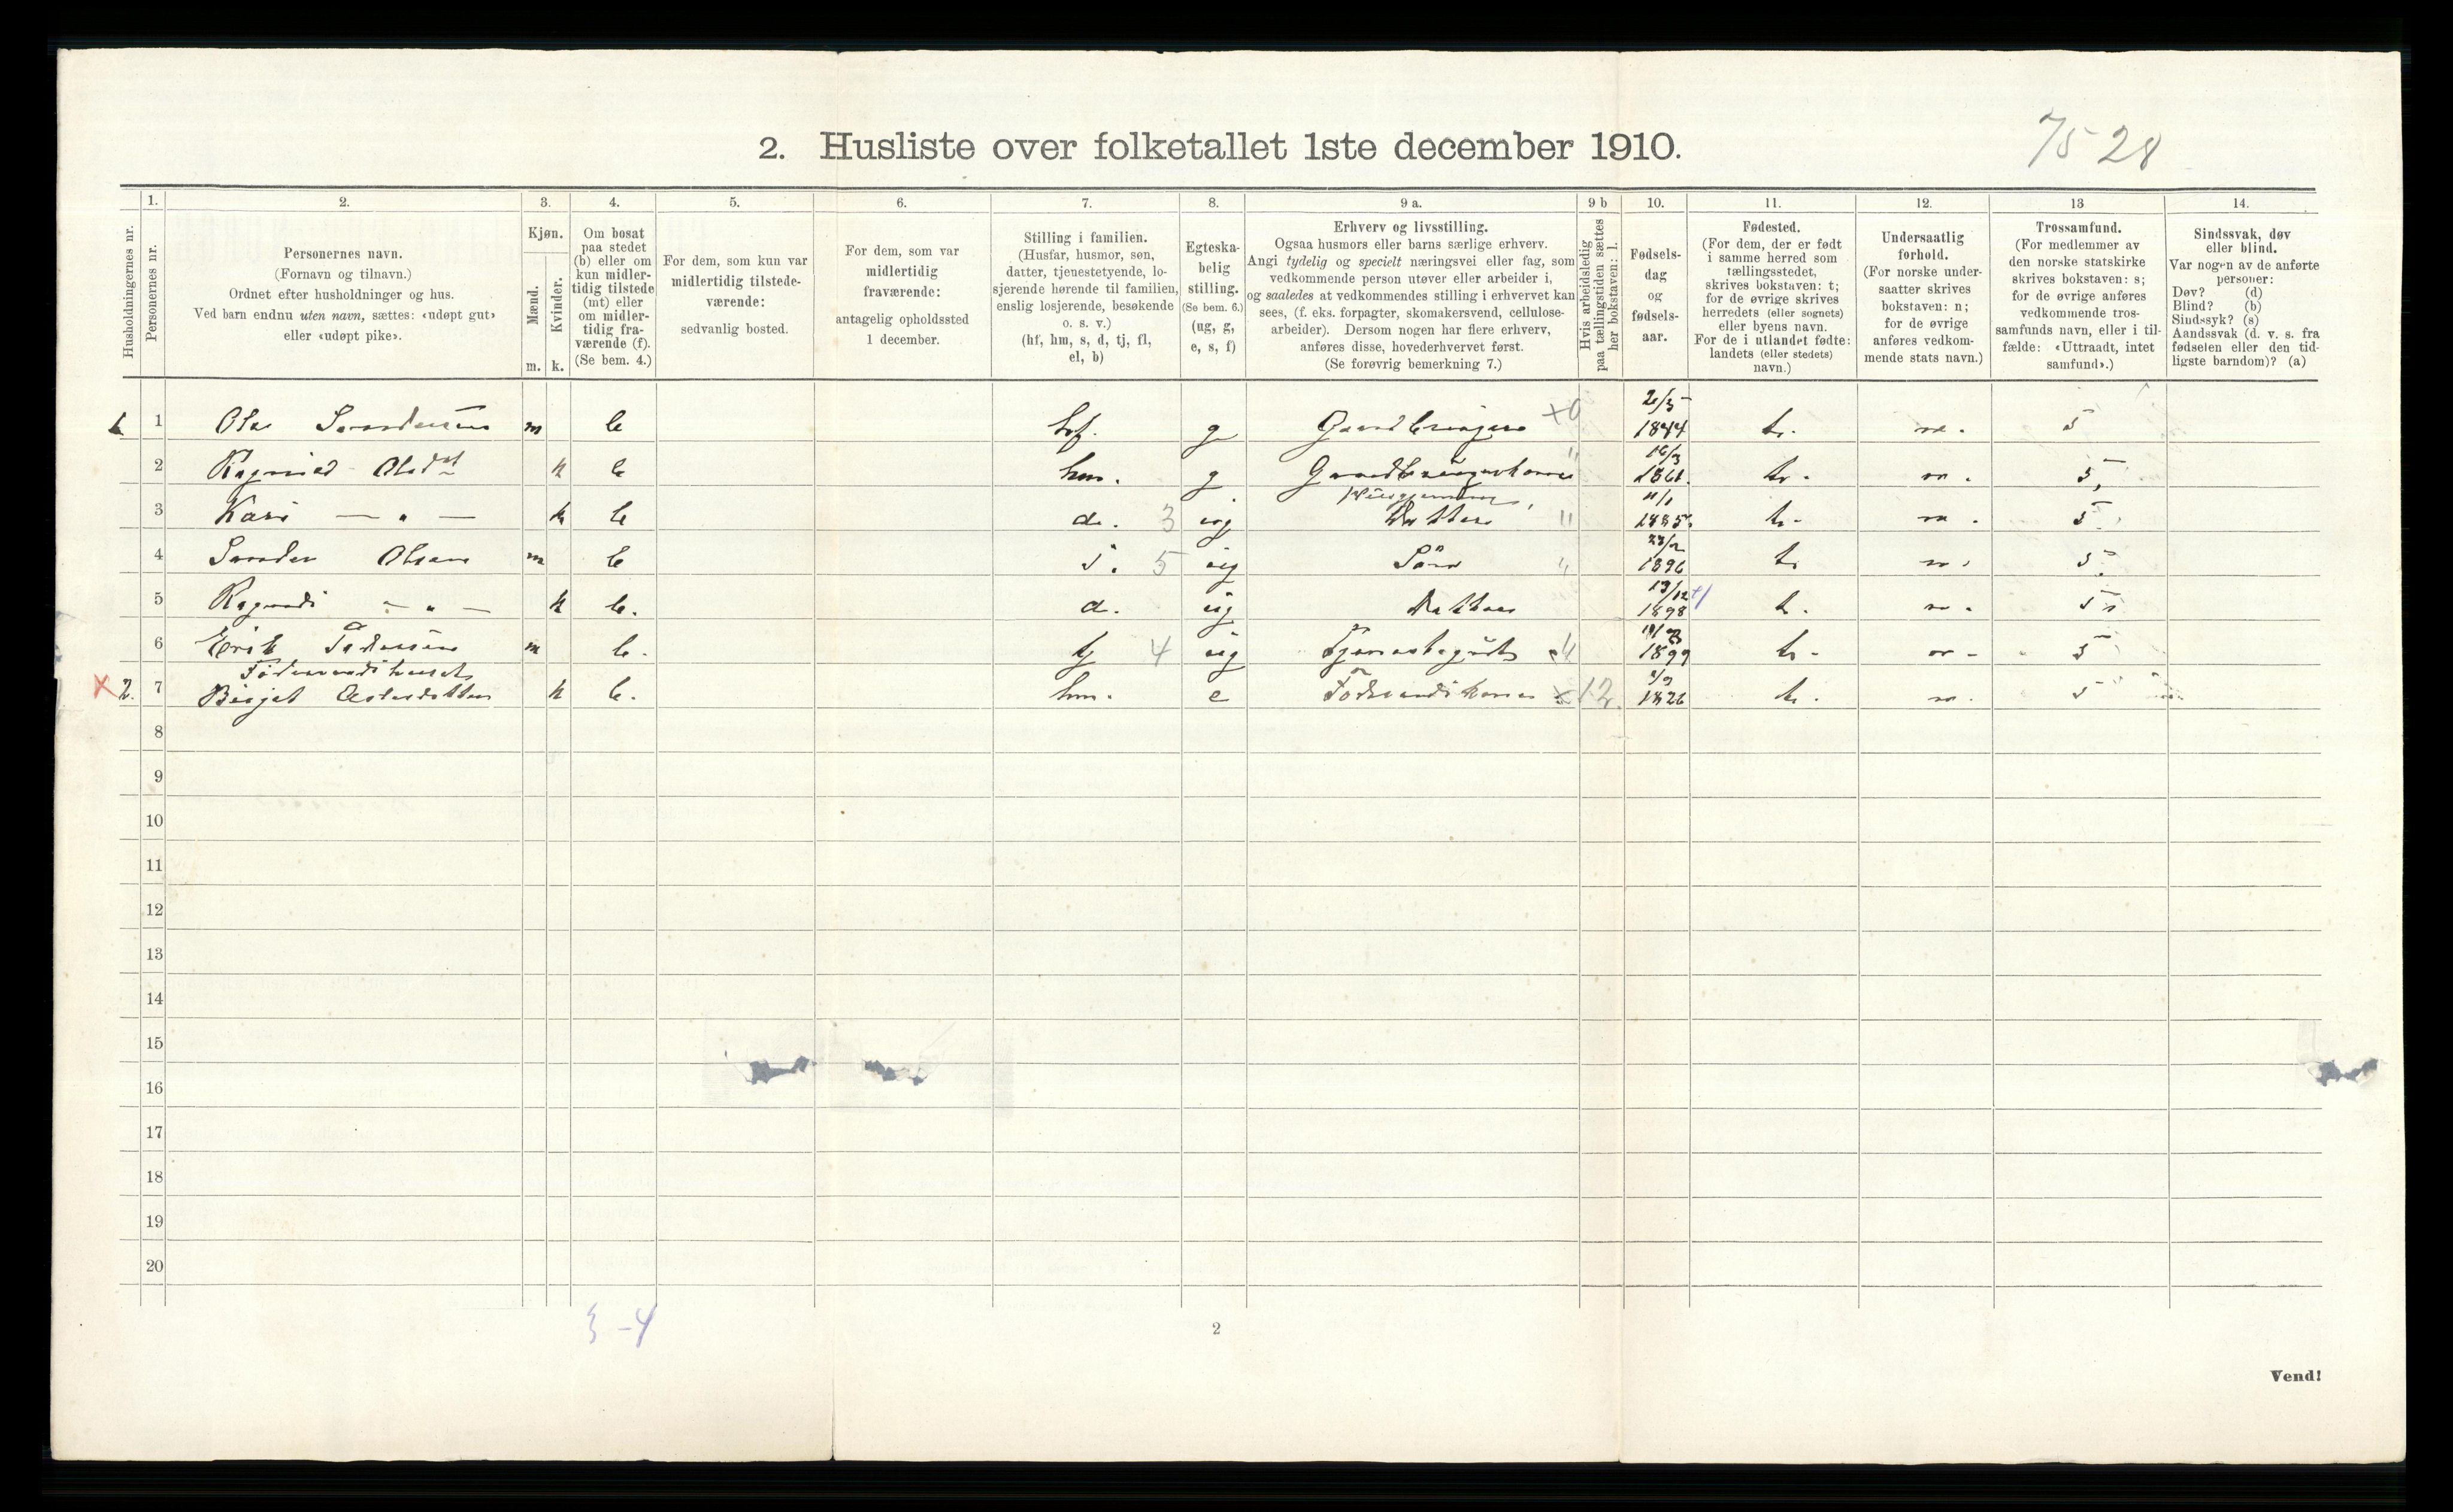 2. Husliste over folketallet 1ste december 1910.
75-28
Husholdningernes nr.
1.
Personernes nr.
2.
Personernes navn.
(Fornavn og tilnavn.)
Ordnet efter husholdninger og hus.
Ved barn endnu uten navn, sættes: «udøpt gut»
eller «udøpt pike».
3.
Kjøn.
Mænd.
Kvinder.
m. k.
4.
Om bosat
paa stedet
(b) eller om
kun midler-
tidig tilstede
(mt) eller
om midler-
tidig fra-
værende (f).
(Se bem. 4.)
5.
For dem, som kun var
midlertidig tilstede-
værende:
sedvanlig bosted.
6.
For dem, som var
midlertidig
fraværende:
antagelig opholdssted
1 december.
7.
Stilling i familien.
(Husfar, husmor, søn,
datter, tjenestetyende, lo-
sjerende hørende til familien,
enslig losjerende, besøkende
o. s. v.)
(hf, hm, s, d, tj, fl,
el, b)
8.
Egteska-
belig
stilling.
(Se bem. 6.)
(ug, g,
e, s, f)
9 a.
Erhverv og livsstilling.
Ogsaa husmors eller barns særlige erhverv.
Angi tydelig og specielt næringsvei eller fag, som
vedkommende person utøver eller arbeider i,
og saaledes at vedkommendes stilling i erhvervet kan
sees, (f. eks. forpagter, skomakersvend, cellulose-
arbeider). Dersom nogen har flere erhverv,
anføres disse, hovederhvervet først.
(Se forøvrig bemerkning 7.)
9 b
Hvis arbeidsledig
paa tællingstiden sættes
her bokstaven: l.
10.
Fødsels-
dag
og
fødsels-
aar.
11.
Fødested.
(For dem, der er født
i samme herred som
tællingsstedet,
skrives bokstaven: t;
for de øvrige skrives
herredets (eller sognets)
eller byens navn.
For de i utlandet fødte:
landets (eller stedets)
navn.)
12.
Undersaatlig
forhold.
(For norske under-
saatter skrives
bokstaven: n;
for de øvrige
anføres vedkom-
mende stats navn.)
13
Trossamfund.
(For medlemmer av
den norske statskirke
skrives bokstaven: s;
for de øvrige anføres
vedkommende tros-
samfunds navn, eller i til-
fælde: «Uttraadt, intet
samfund».)
14.
Sindssvak, døv
eller blind.
Var nogen av de anførte
personer:
Døv? (d)
Blind? (b)
Sindssyk? (s)
Aandssvak (d. v. s. fra
fødselen eller den tid-
ligste barndom)? (a)
1 1 Ola m b hf. g Gaardbruger 1844 t. n. s
2 Olsdt k b hm. g 16/3 1861. t. n. s,
3 Kari — " — k b d. 3 ug Datter " 11/1 1885. t. n. s
4 Olsen m b s. 5 ug Sön " 23/2 1896 t n. s.
5 — " — k b. d. ug Datter 13/12 1898 t. n. s
6 Erik m b. tj 4 ug Tjenestegut 1899 t. n - s
X 2. 7 Birjet k b. hm. e X 12. 1826 t. n. s
8
9
10
11
12
13
14
15
16
17
18
19
20
3-4
2
Vend!